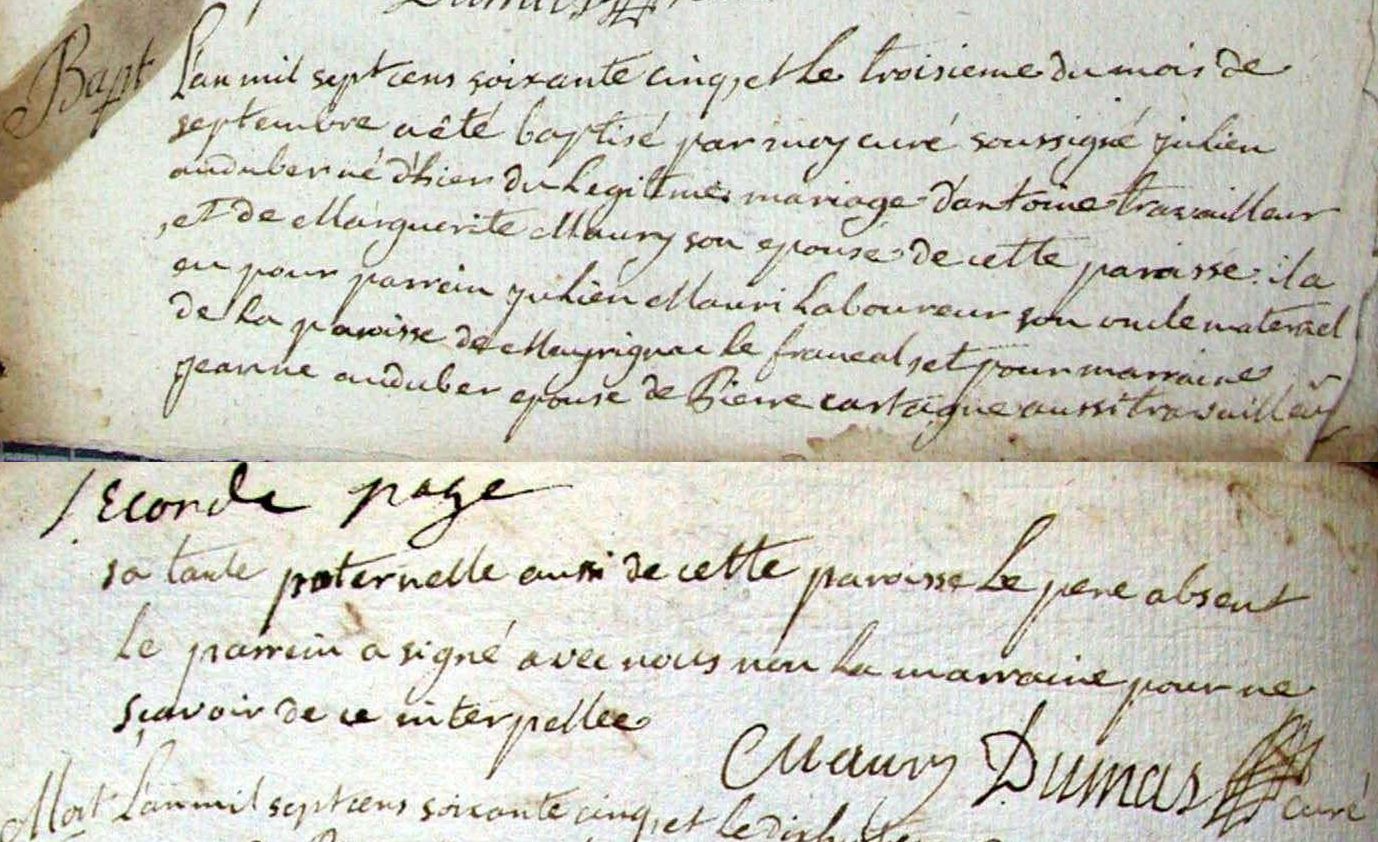 Dumas
Bapt L'an mil sept cens soixante cinq, et le troisieme du mois de
septembre a été baptisé par moy curé soussigné julien
auduber né d'hier du legitime mariage d'antoine travailleur
, et de Marguerite Maury son epouse de cette paroisse: il a
eu pour parrein julien Mauri laboureur son oncle maternel
de la paroisse de Mayrignac le francal, et pour marraine
jeanne auduber epouse de Pierre cartaigne aussi travailleur
seconde page
sa tante paternelle aussi de cette paroisse le pere absent
le parrein a signé avec nous non la marraine pour ne
sçavoir de ce interpellée
Maury Dumas curé
Mort L'an mil sept cens soixante cinq, et le dixhuit